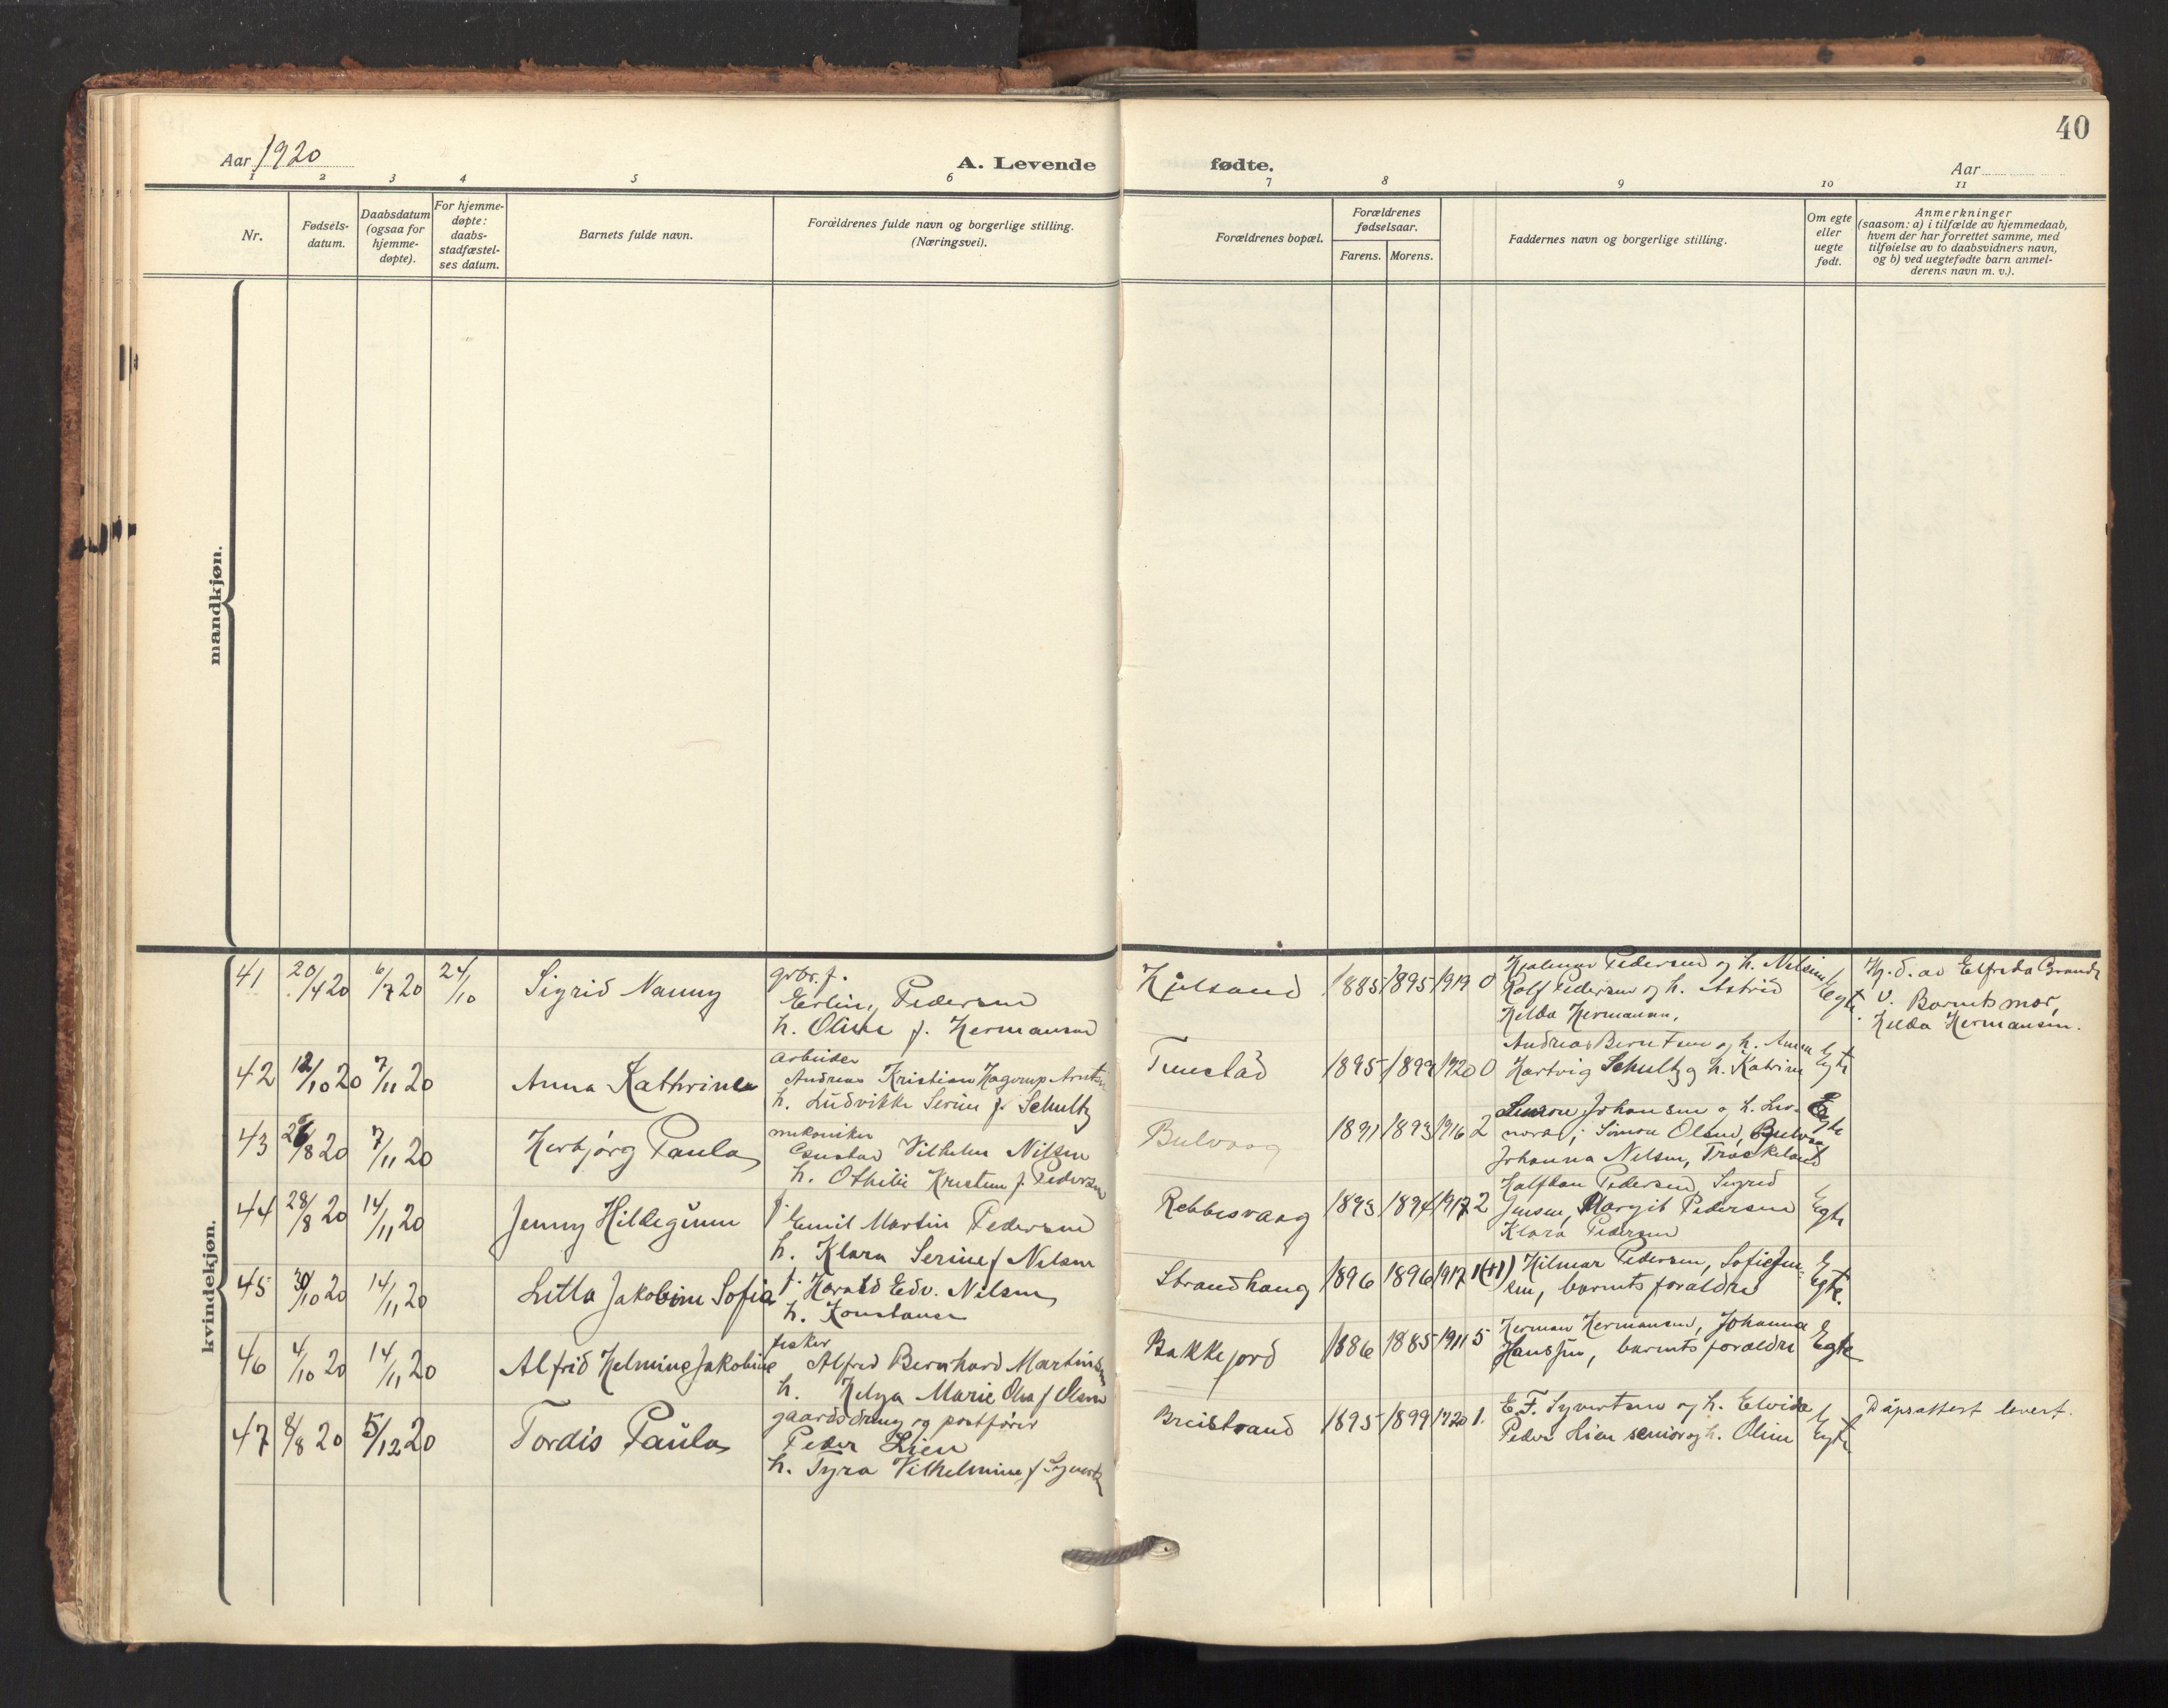 40
Aar 1920
A. Levende fødte.
Aar
1 2 3 4 5 6 7 8 9 10 11
Nr.
Fødsels-
datum.
Daabsdatum
(ogsaa for
hjemme-
døpte).
For hjemme-
døpte:
daabs-
stadfæstel-
ses datum.
Barnets fulde navn.
Forældrenes fulde navn og borgerlige stilling.
(Næringsvei).
Forældrenes bopæl.
Forældrenes
fødselsaar.
Farens. Morens.
Faddernes navn og borgerlige stilling.
Om egte
eller
uegte
født.
Anmerkninger
(saasom: a) i tilfælde av hjemmedaab,
hvem der har forrettet samme, med
tilføielse av to daabsvidners navn,
og b) ved uegtefødte barn anmel-
derens navn m. v.).
mandkjøn.
kvindekjøn.
41 20/4 20 6/7 20 24/10 Sigrid Nanny
grbr. f.
Erling Pedersen
h. Oline f. Hermansen
Kjelsand 1885 1895 1919 0
Hjalmar Pedersen og h. Nelsine
Rolf Pedersen og h. Astrid
Hilda Hermansen,
Egte.
Hj. d. av Elfrida Brandt
v. Barnets mor,
Hilda Hermansen.
42 12/10 20 7/11 20 Anna Kathrine
arbeider
Andreas Kristian Hagerup Arntsen
h. Ludvikke Serine f. Schultz
Tunstad 1895 1899 1920 0
Andreas Berntsen og h. Anna
Hartvig Schultz og h. Katrine
Egte
43 26/8 20 7/11 20 Herbjørg Paula
mekaniker
Gustav Vilhelm Nilsen
h. Othilie Kristine f. Pedersen
Bulvaag 1891 1893 1916 2
Simon Johansen og h. Leo-
nora; Simon Olsen, Bulvaag
Johanna Nilsen, Træskeland
Egte
44 28/8 20 14/11 20 Jenny Hildegunn
f. Emil Martin Pedersen
h. Klara Serine f. Nilsen
Rebbesvaag 1893 1894 1917 2
Halfdan Pedersen, Sigrid
Jensen, Margit Pedersen
Klara Pedersen
Egte
45 30/10 20 14/11 20 Litta Jakobine Sofia
f. Harald Edv. Nilsen
h. Konstanse
Strandhaug 1896 1896 1917 1(+1)
Hilmar Pedersen, Sofie Jen-
sen, barnets forældre
Egte.
46 4/10 20 14/11 20 Alfrid Helmine Jakobine
fisker
Alfred Bernhard Martinsen
h. Helga Marie Olsa f. Olsen
Bakkejord 1886 1885 1911 5
Herman Hermansen, Johanna
Hanssen, barnets forældre
Egte
47 8/8 20 5/12 20 Tordis Paula
gaardsdreng og postfører
Peder Lien
h. Tyra Vilhelmine f. Syvertsen
Breistrand 1895 1899 1920 1.
E. F. Syvertsen og h. Elvida
Peder Lien senior og h. Oline
Egte
Dåpsattest levert.